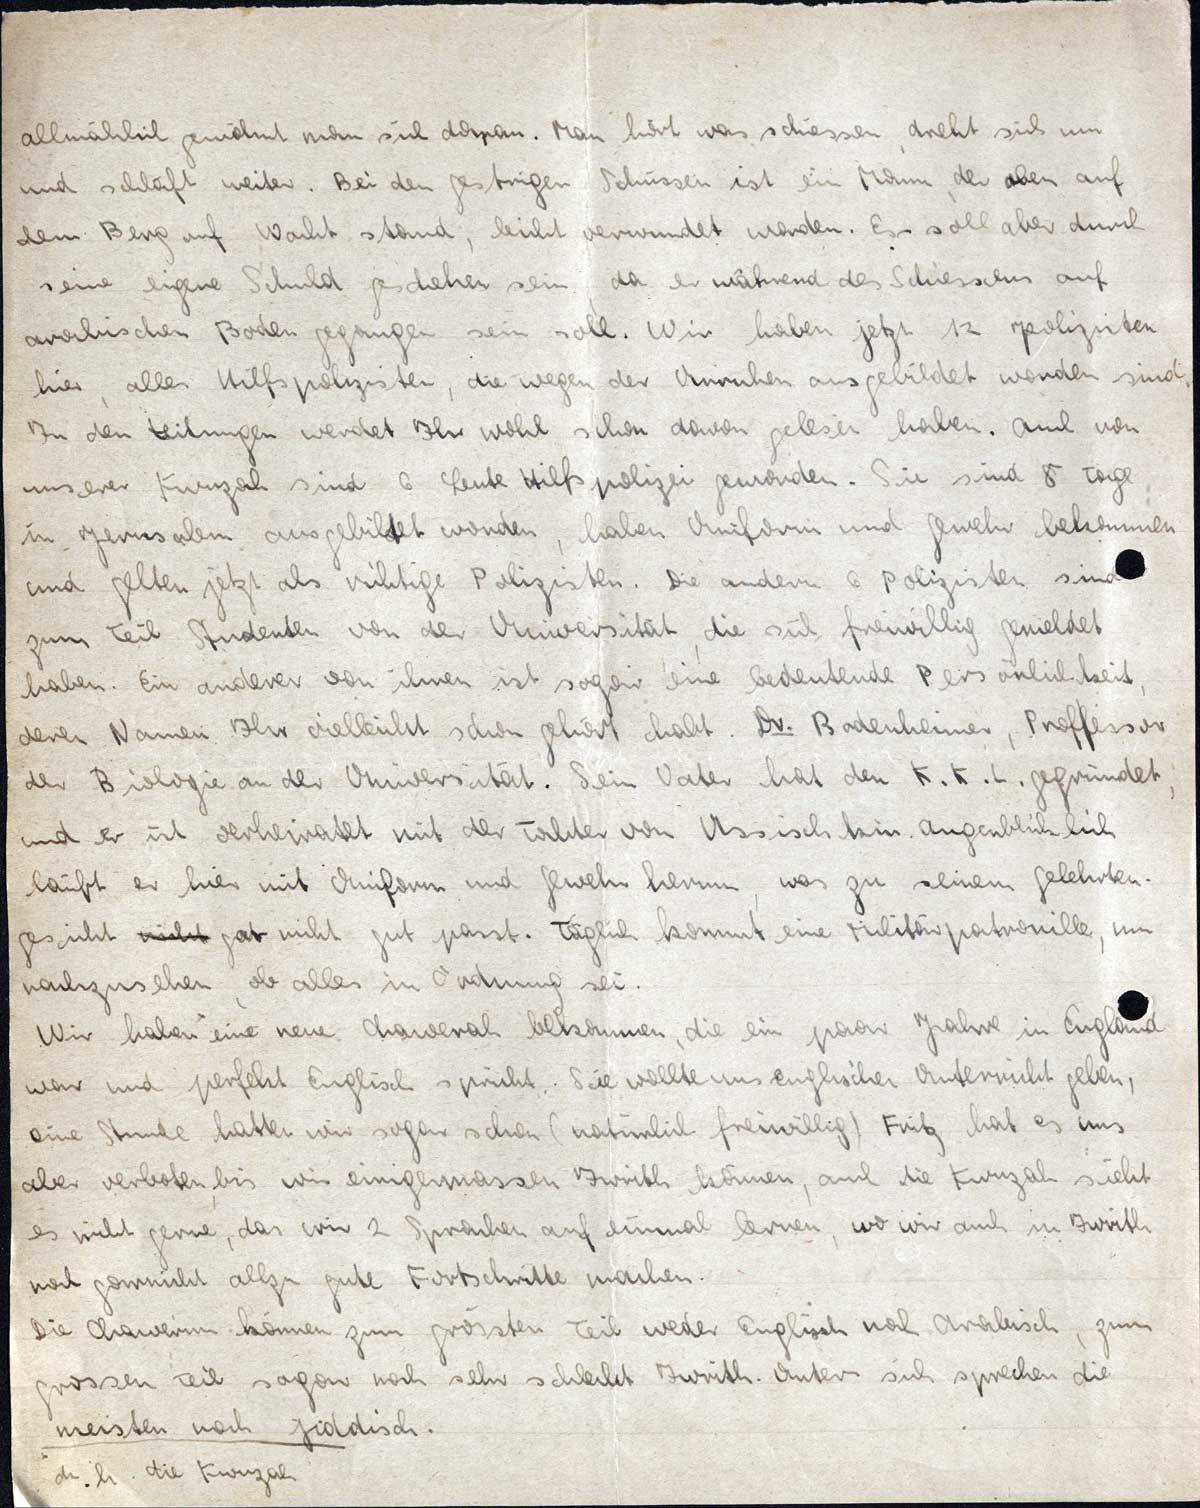 allmählich gewöhnt man sich daran. Man hört was schiessen, dreht sich um
und schläft weiter. Bei den gestrigen Schüssen ist ein Mann, der oben auf
dem Berg auf Wacht stand, leicht verwundet worden. Es soll aber durch
seine eigene Schuld geschehen sein, da er während des Schiessens auf
arabischen Boden gegangen sein soll. Wir haben jetzt 12 Polizisten
hier, alles Hilfspolizisten, die wegen der Unruhen ausgebildet worden sind.
In den Zeitungen werdet Ihr wohl schon davon gelesen haben. Auch von
unserer Kwuzah sind 6 Leute Hilfspolizei geworden. Sie sind 8 Tage
in Jerusalem ausgebildet worden, haben Uniform und Gewehr bekommen
und gelten jetzt als richtige Polizisten. Die andern 6 Polizisten sind
zum Teil Studenten von der Universität, die sich freiwillig gemeldet
haben. Ein anderer von ihnen ist sogar eine bedeutende Persönlichkeit,
deren Namen Ihr vielleicht schon gehört habt. Dr. Bodenheimer, Proffessor
der Biologie an der Universität. Sein Vater hat den K.K.L. gegründet,
und er ist verheiratet mit der Tochter von Ussischkin. Augenblicklich
läuft er hier mit Uniform und Gewehr herum, was zu seinem Gelehrten-
gesicht nicht gar nicht gut passt. Täglich kommt eine Militärpatrouille, um
nachzusehen, ob alles in Ordnung sei.
Wir haben eine neue Chawerah bekommen, die ein paar Jahre in England
war und perfekt Englisch spricht. Sie wollte uns englischen Unterricht geben,
eine Stunde hatten wir sogar schon (natürlich freiwillig) Fritz hat es uns
aber verboten, bis wir einigermassen Iwrith können, auch die Kwuzah sieht
es nicht gerne, das wir 2 Sprachen auf einmal lernen, wo wir auch in Iwrith
noch garnicht allzu gute Fortschritte machen.
Die Chawerim können zum grössten Teil weder Englisch noch Arabisch, zum
grossen Teil sogar noch sehr schlecht Iwrith. Unter sich sprechen die
meisten noch jiddisch.
d.h. die Kwuzah